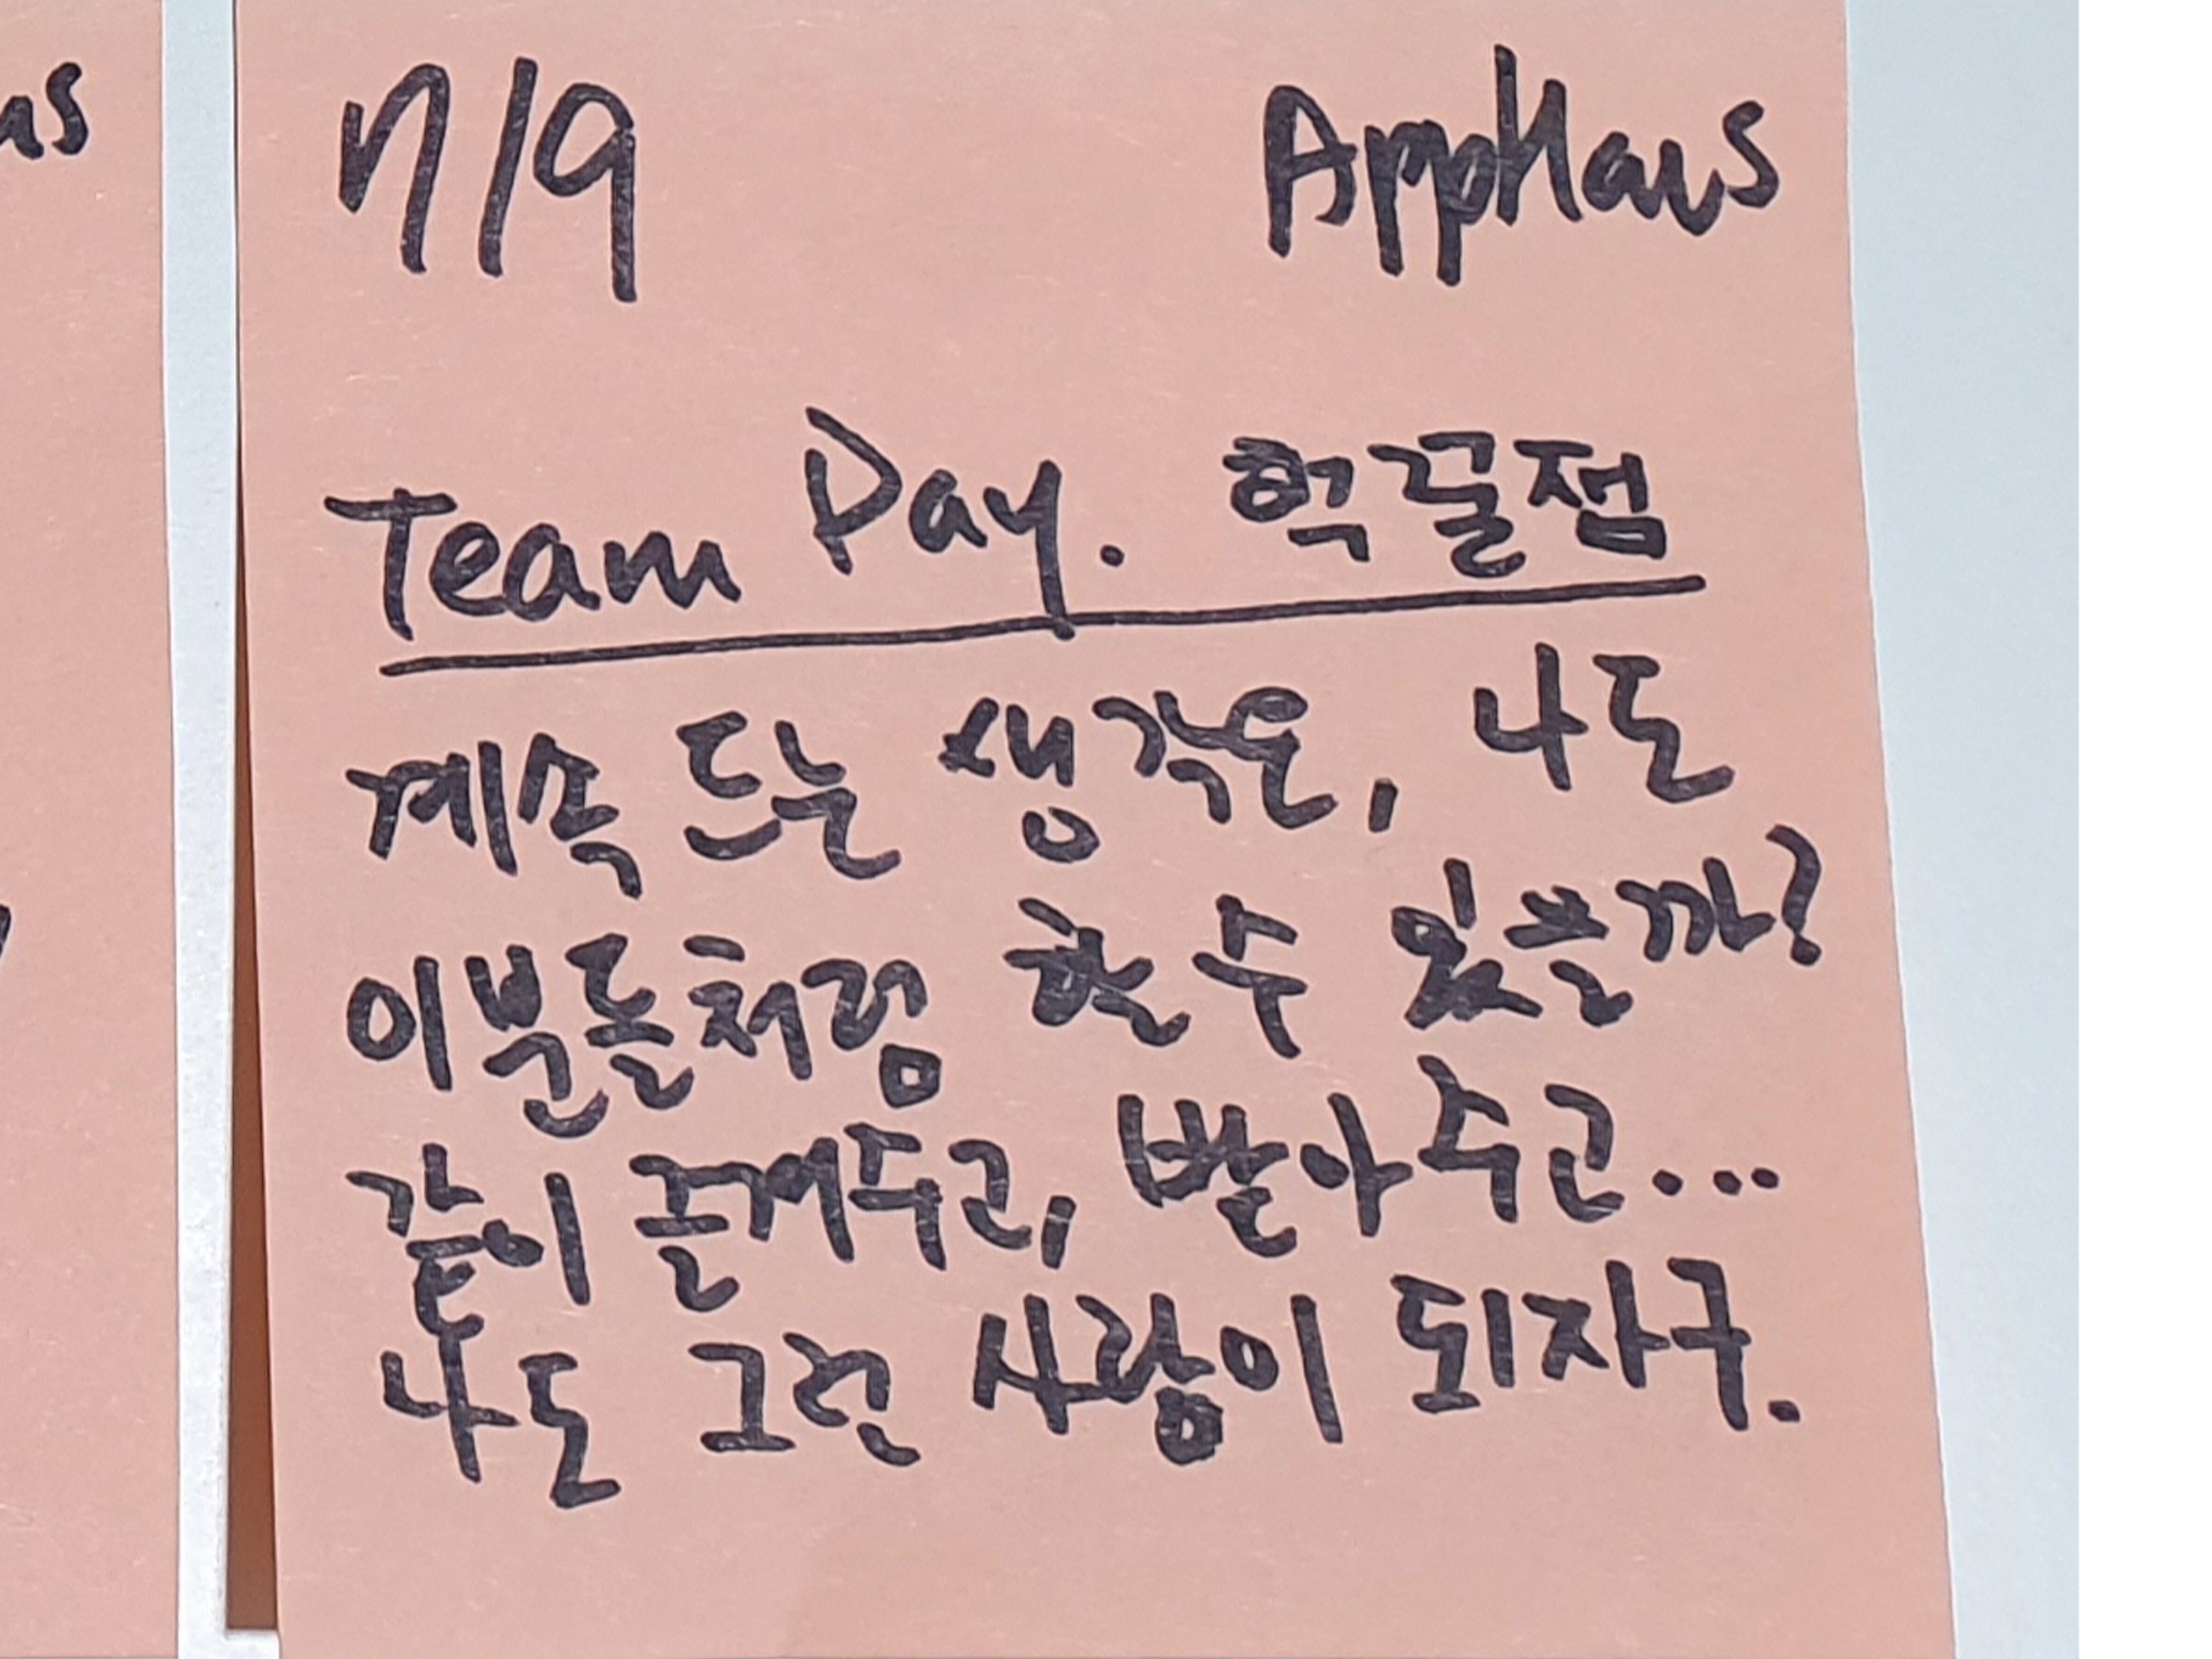 us
7/9 AppHaus
Team Day.
계속 드는 생각은, 나도
이분들처럼 할 수 있을까?
같이 받아주고...
나도 그런 사람이 되자구.